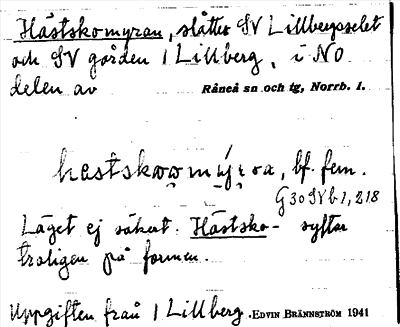 Hästskomyran, slåtter SV Lillbergsselet
och SV gården 1 Lillberg, i NO
delen av Råneå sn och tg, Norrb. l.
hastskoomýra, bf. fem.
G30SVb1,218
Läget ej säkert. Hästsko- syftar
troligen på formen.
Uppgiften från 1 Lillberg. EDVIN BRÄNNSTRÖM 1941